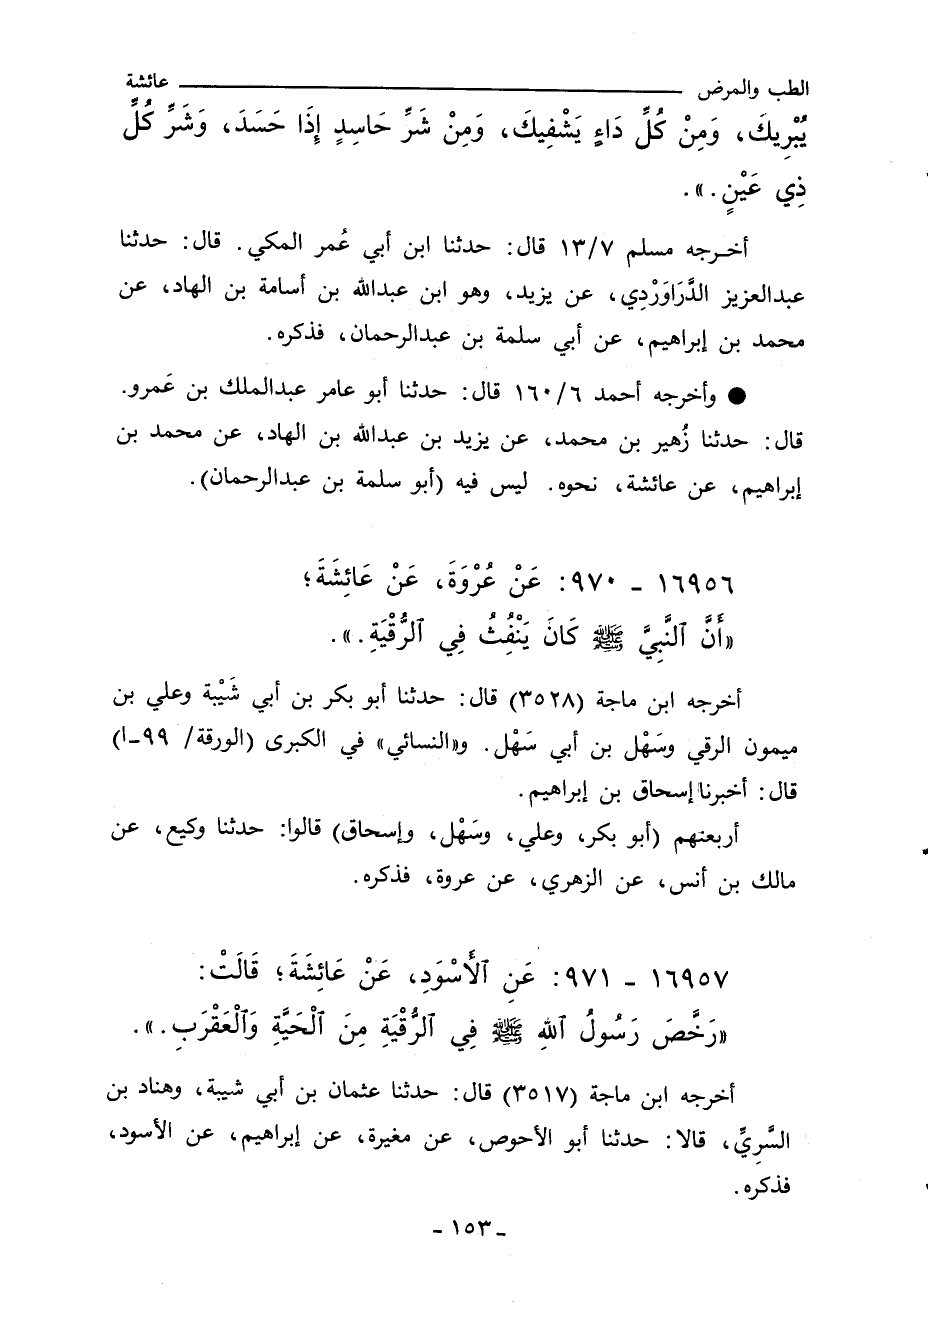 الطب والمرض ــــــ عائشة
يُبْرِيكَ، وَمِنْ كُلِّ دَاءٍ يَشْفِيكَ، وَمِنْ شَرِّ حَاسِدٍ إِذَا حَسَدَ، وَشَرِّ كُلِّ
ذِي عَيْنٍ.».
أخـرجه مسلم ١٣/٧ قال: حدثنا ابن أبي عُمر المكي. قال: حدثنا
عبدالعزيز الدَّرَاوَرْدِي، عن يزيد، وهو ابن عبدالله بن أسامة بن الهاد، عن
محمد بن إبراهيم، عن أبي سلمة بن عبدالرحمان، فذكره.
● وأخرجه أحمد ١٦٠/٦ قال: حدثنا أبو عامر عبدالملك بن عَمرو.
قال: حدثنا زُهير بن محمد، عن يزيد بن عبدالله بن الهاد، عن محمد بن
إبراهيم، عن عائشة، نحوه. ليس فيه (أبو سلمة بن عبدالرحمان).
١٦٩٥٦ ـ ٩٧٠: عَنْ عُرْوَةَ، عَنْ عَائِشَةَ؛
«أَنَّ ٱلنَّبِيَّ ﷺ كَانَ يَنْفُثُ فِي ٱلرُّقْيَةِ.».
أخرجه ابن ماجة (٣٥٢٨) قال: حدثنا أبو بكر بن أبي شَيْبة وعلي بن
ميمون الرقي وسَهْل بن أبي سَهْل. و«النسائي» في الكبرى (الورقة/ ٩٩ـ١)
قال: أخبرنا إسحاق بن إبراهيم.
أربعتهم (أبو بكر، وعلي، وسَهْل، وإسحاق) قالوا: حدثنا وكيع، عن
مالك بن أنس، عن الزهري، عن عروة، فذكره.
١٦٩٥٧ ـ ٩٧١: عَنِ ٱلأَسْوَدِ، عَنْ عَائِشَةَ؛ قَالَتْ:
«رَخَّصَ رَسُولُ ٱللهِ ﷺ فِي ٱلرُّقْيَةِ مِنَ ٱلْحَيَّةِ وَٱلْعَقْرَبِ.».
أخرجه ابن ماجة (٣٥١٧) قال: حدثنا عثمان بن أبي شيبة، وهناد بن
السَّرِيِّ، قالا: حدثنا أبو الأحوص، عن مغيرة، عن إبراهيم، عن الأسود،
فذكره.
ـ ١٥٣ ـ